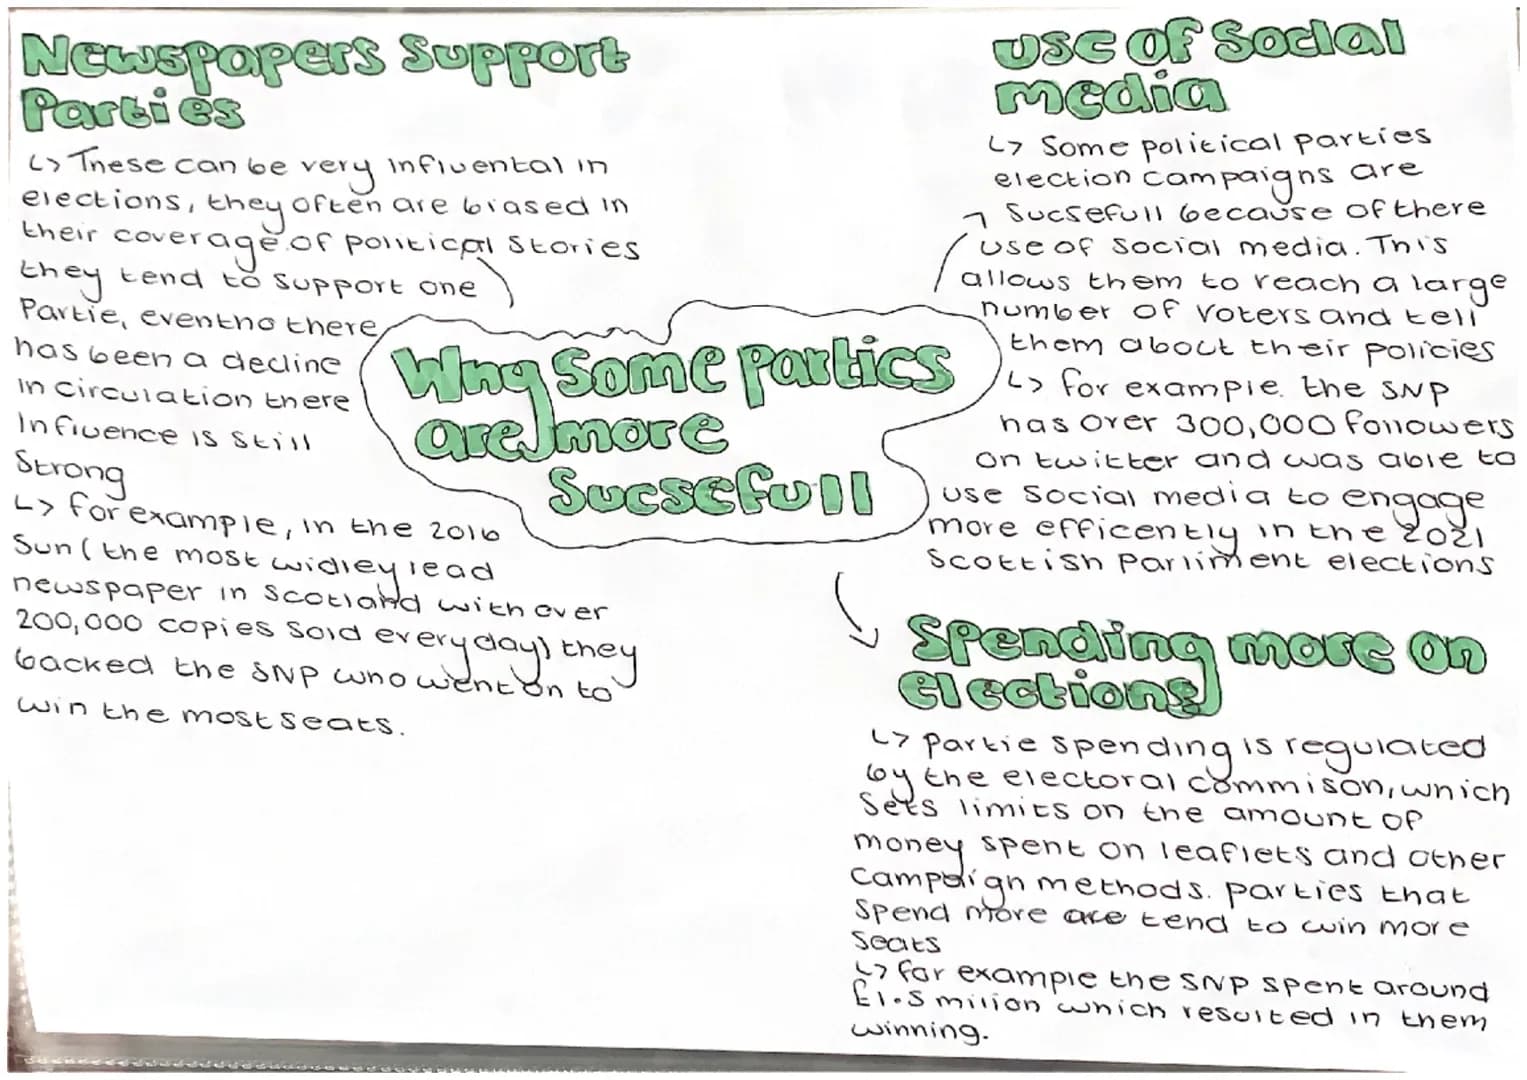 Newspapers Support
Parties
↳ These can be very influental in
elections, they often are biased in
their coverage of political stories
they tend to support one
Partie, eventho there
has been a decline
in circulation there
Influence is still
Strong
↳ for example, in the 2016
Sun (the most widley read
newspaper in Scotland with over
200,000 copies sold everyday) they
backed the SNP who went on to
win the most seats.
Why Some parties
are more
Sucsefull
use of Social
media
↳ Some political parties
election campaigns are
Sucsefull because of there
use of social media. This
allows them to reach a large
number of voters and tell
them about their policies
↳ for example. the SNP
has over 300,000 followers
on twitter and was able to
use social media to engage
more efficently in the 2021
Scottish Parliment elections
Spending more on
elections
↳ Partie spending is regulated
by the electoral commison, which
Sets limits on the amount of
money spent on leaflets and other
campaign methods. parties that
Spend more are tend to win more
Seats
↳ for example the SNP spent around
£1.5 milion which resulted in them
winning.